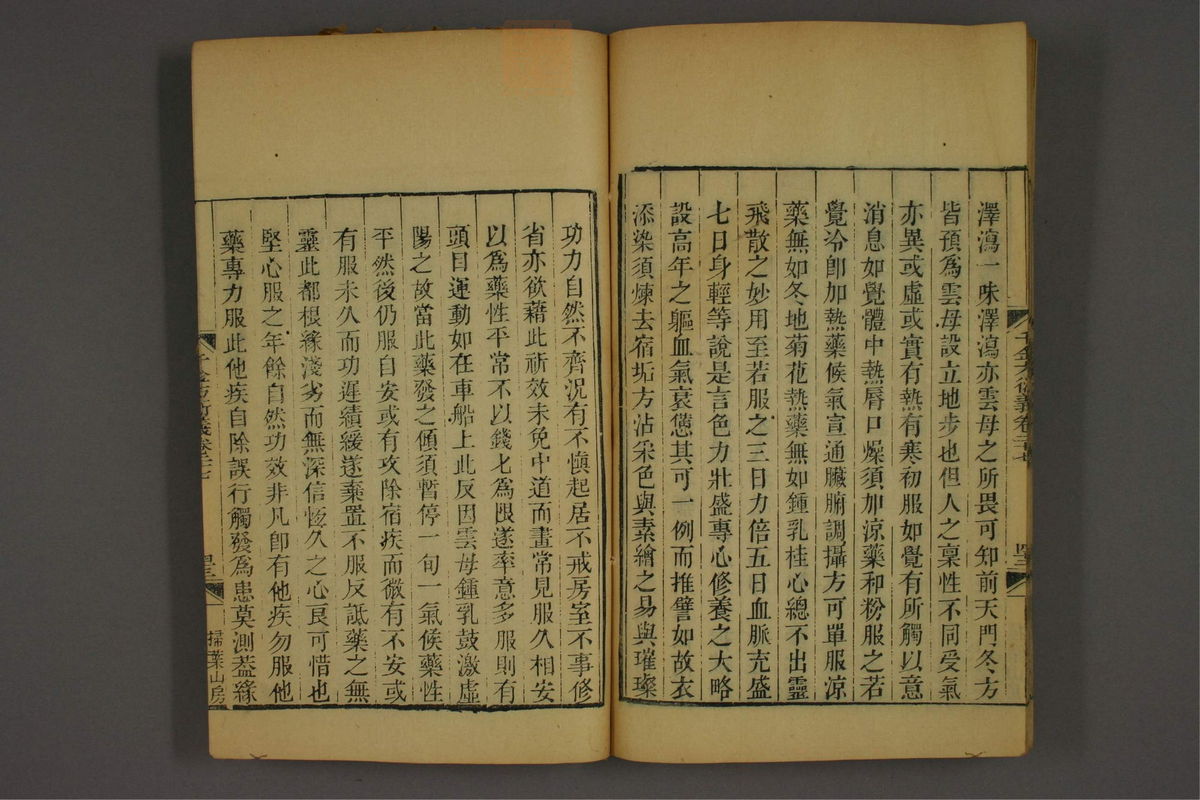 澤瀉一味澤瀉亦雲母之所畏可知前天門冬方
皆預為雲母設立地步也但人之稟性不同受氣
亦異或虛或實有熱有寒初服如覺有所觸以意
消息如覺體中熱脣口燥須加涼藥和粉服之若
覺冷卽加熱藥候氣宣通臟腑調攝方可單服涼
藥無如冬地菊花熱藥無如鍾乳桂心總不出靈
飛散之妙用至若服之三日力倍五日血脈充盛
七日身輕等說是言色力壯盛專心修養之大略
設高年之軀血氣衰憊其可一例而推譬如故衣
添染須煉去宿垢方沾采色與素繪之易與璀璨
功力自然不齊況有不慎起居不戒房室不事修
省亦欲藉此祈效未免中道而畫常見服久相安
以為藥性平常不以錢匕為限遂率意多服則有
頭目運動如在車船上此反因雲母鍾乳鼓激虛
陽之故當此藥發之傾須暫停一旬一氣候藥性
平然後仍服自安或有攻除宿疾而微有不安或
有服未久而功遲績緩遂棄置不服反詆藥之無
靈此都根緣淺劣而無深信恆久之心良可惜也
堅心服之年餘自然功效非凡卽有他疾勿服他
藥專力服此他疾自除誤行觸發為患莫測蓋緣
千金方衍義卷二十七
四三
掃葉山房